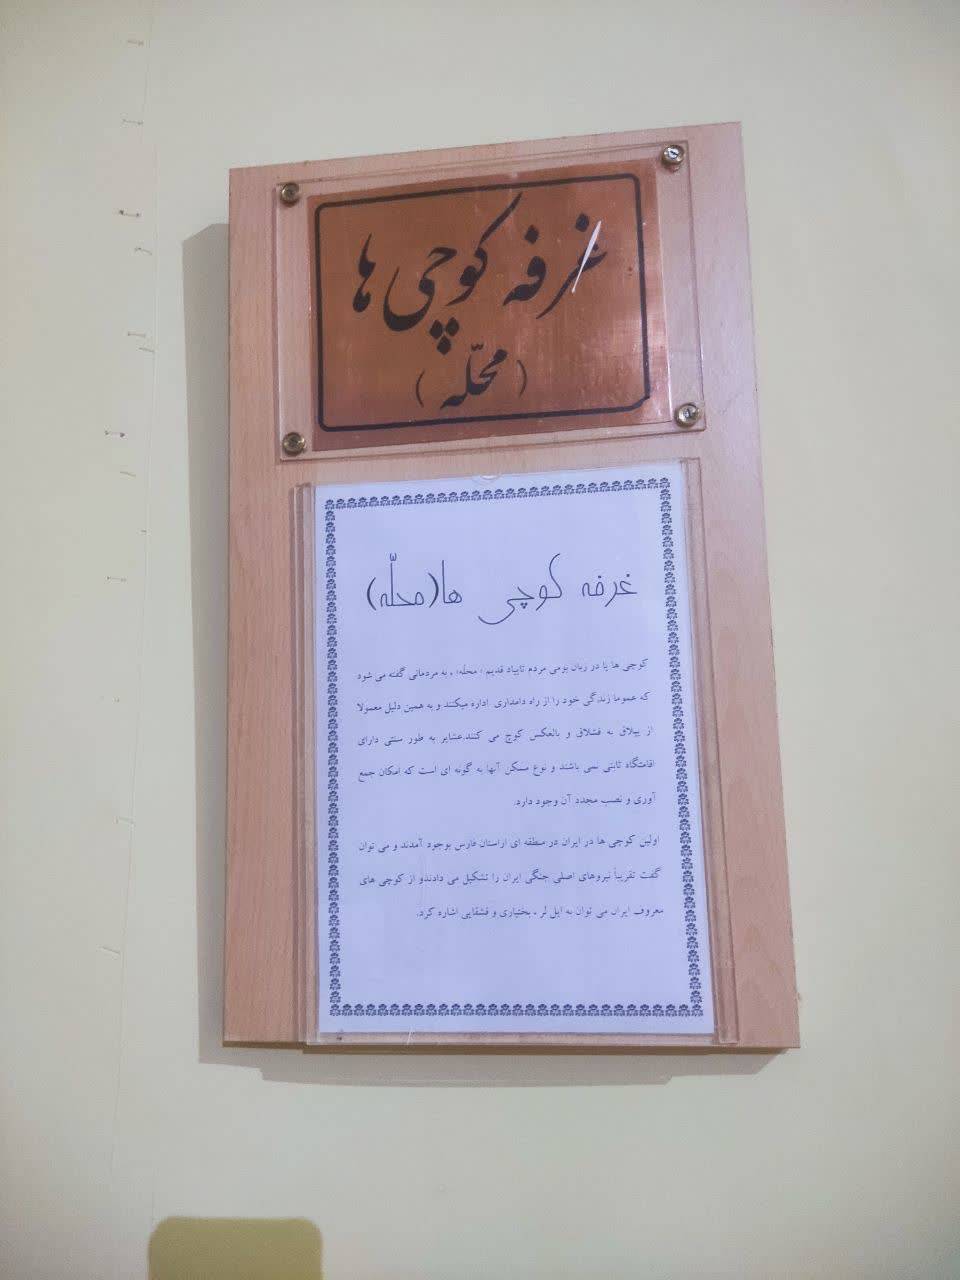 غرفه کوچی ها
(محلّه)
غرفه کوچی ها(محلّه)
کوچی ها یا در زبان بومی مردم تایباد قدیم ، محله، ، به مردمانی گفته می شود
که عموما زندگی خود را از راه دامداری اداره میکنند و به همین دلیل معمولا
از ییلاق به قشلاق و بالعکس کوچ می کنند.عشایر به طور سنتی دارای
اقامتگاه ثابتی نمی باشند و نوع مسکن آنها به گونه ای است که امکان جمع
آوری و نصب مجدد آن وجود دارد.
اولین کوچی ها در ایران در منطقه ای ازاستان فارس بوجود آمدند و می توان
گفت تقریباً نیروهای اصلی جنگی ایران را تشکیل می دادندو از کوچی های
معروف ایران می توان به ایل لر ، بختیاری و قشقایی اشاره کرد.